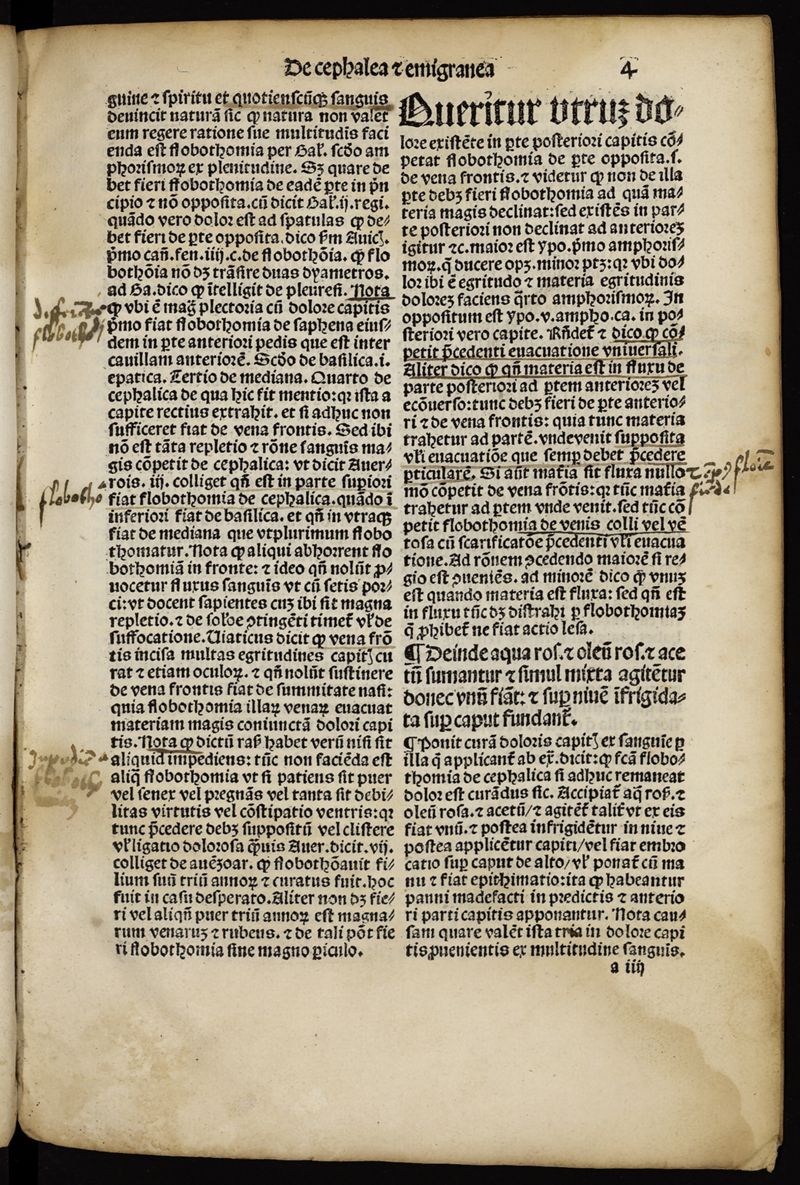 De cephalea ⁊ emigranea
4
guine ⁊ spiritu et quotienscūqꝫ sanguis
deuincit naturā sic ꝙ natura non valet
eum regere ratione sue multitudīs faci
enda est flobothomia per Gal'. scd̄o am
phorismoꝝ ex plenitudine. Sꝫ quare de
bet fieri flobothomia de eadē ꝑte in prīn
cipio ⁊ nō opposita. cū dicit Gal'. ij. regi.
quādo vero dolor est ad spatulas ꝙ de⸗
bet fieri de ꝑte opposita. dico ꝓm Auicͥ.
p̄mo can̄. fen. iiij. c. de flobothōia. ꝙ flo
bothōia nō dꝫ trāsire duas dyametros.
ad Ga. dico ꝙ ītelligit de pleuresi. Nota
ꝙ vbi ē maḡ plectoria cū dolore capitis
p̄mo fiat flobothomia de saphena eius⸗
dem in ꝑte anteriori pedis que est inter
cauillam anteriorē. Scd̄o de basilica. i.
epatica. Tertio de mediana. Quarto de
cephalica de qua hic fit mentio: qꝛ ista a
capite rectius extrahit. et si adhuc non
sufficeret fiat de vena frontis. Sed ibi
nō est tāta repletio ⁊ rōne sanguis ma⸗
gis cōpetit de cephalica: vt dicit Auer⸗
rois. iij. colliget qn̄ est in parte supiori
fiat flobothomia de cephalica. quādo ī
inferiori fiat de basilica. et qn̄ in vtraqꝫ
fiat de mediana que vtplurimum flobo
thomatur. Nota ꝙ aliqui abhorrent flo
bothomiā in fronte: ⁊ ideo qn̄ nolūt ꝓ⸗
uocetur fluxus sanguis vt cū setis por⸗
ci: vt docent sapientes cuꝫ ibi sit magna
repletio. ⁊ de sol'oe ꝯtingēti timet' vl' de
suffocatione. Uiaticus dicit ꝙ vena frō
tis incisa multas egritudines capit̛ cu
rat ⁊ etiam oculoꝝ. ⁊ qn̄ nolūt sustinere
de vena frontis fiat de summitate nasi:
quia flobothomia illaꝝ venaꝝ euacuat
materiam magis coniunctā dolori capi
tis. Nota ꝙ dictū ras' habet verū nisi sit
aliquid impediens: tūc non faciēda est
aliq̄ flobothomia vt si patiens sit puer
vel senex vel pregnās vel tanta sit debi⸗
litas virtutis vel cōstipatio ventris: qꝛ
tunc p̄cedere debꝫ suppositū vel clistere
vl' ligatio dolorosa q̄uis Auer. dicit. vij.
colliget de auēzoar. ꝙ flobothōauit fi⸗
lium suū triū annoꝝ ⁊ curatus fuit. hoc
fuit in casu desperato. Aliter non dꝫ fie⸗
ri vel aliqn̄ puer triū annoꝝ est magna⸗
rum venaruꝫ ⁊ rubeus. ⁊ de tali pōt fie
ri flobothomia sine magno ꝑiculo.
Queritur vtruꝫ do⸗
lore existēte in ꝑte posteriori capitis cō⸗
petat flobothomia de ꝑte opposita. s.
de vena frontis. ⁊ videtur ꝙ non de illa
ꝑte debꝫ fieri flobothomia ad quā ma⸗
teria magis declinat: sed existēs in par⸗
te posteriori non declinat ad anterioreꝫ
igitur ⁊c. maior est ypo. p̄mo amphoris⸗
moꝝ. q̄ ducere opꝫ. minor ptꝫ: qꝛ vbi do⸗
lor ibi ē egritudo ⁊ materia egritudinis
doloreꝫ faciens q̄rto amphorismoꝝ. In
oppositum est ypo. v. ampho. ca. in po⸗
steriori vero capite. Rn̄det' ⁊ dico ꝙ cō⸗
petit p̄cedenti euacuatione vniuersali.
Aliter dico ꝙ qn̄ materia est in fluxu de
parte posteriori ad ꝑtem anterioreꝫ vel
ecōuerso: tunc debꝫ fieri de ꝑte anterio⸗
ri ⁊ de vena frontis: quia tunc materia
trahetur ad partē. vndevenit supposita
vl'i euacuatiōe que semꝑ debet p̄cedere
ꝑticularē. Si aūt mat'ia sit fluxa nullo
mō cōpetit de vena frōtis: qꝛ tūc mat'ia
trahetur ad ꝑtem vnde venit. sed tūc cō
petit flobothomia de venis colli vel vē
tosa cū scarificatōe p̄cedenti vl'i euacua
tione. Ad rōnem ꝓcedendo maiorē si re⸗
gio est ꝯueniēs. ad minorē dico ꝙ vnuꝫ
est quando materia est fluxa: sed qn̄ est
in fluxu tūc dꝫ distrahi ꝑ flobothomiaꝫ
q̄ ꝓhibet' ne fiat actio lesa.
¶ Deinde aqua ros. ⁊ oleū ros. ⁊ ace
tū sumantur ⁊ simul mixta agitētur
donec vnū fiāt: ⁊ suꝑ niuē īfrigida⸗
ta suꝑ caput fundant'.
¶ Ponit curā doloris capit̛ ex sanguīe ꝑ
illa q̄ applicant' ab ex̄. dicit: ꝙ fcā flobo⸗
thomia de cephalica si adhuc remaneat
dolor est curādus sic. Accipiat' aq̄ ros'. ⁊
oleū rosa. ⁊ acetū/ ⁊ agitēt' talit' vt ex eis
fiat vnū. ⁊ postea infrigidētur in niue ⁊
postea applicētur capiti/ vel fiat embro
catio suꝑ caput de alto/ vl' ponat' cū ma
nu ⁊ fiat epithimatio: ita ꝙ habeantur
panni madefacti in predictis ⁊ anterio
ri parti capitis apponantur. Nota cau⸗
sam quare valēt ista tria in dolore capi
tis ꝓuenientis ex multitudine sanguis.
a iiij